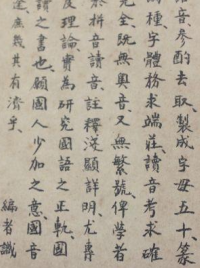 音參酌去取製成字母五十篆
種字體務求端莊讀音考求確
完全既無奧音又無繁號俾學者
於拼音讀音註釋淺顯詳明尤專
及理論實為研究國語之正軌國
讀之書也願國人少加之意國音
途庶幾其有濟乎
編者識